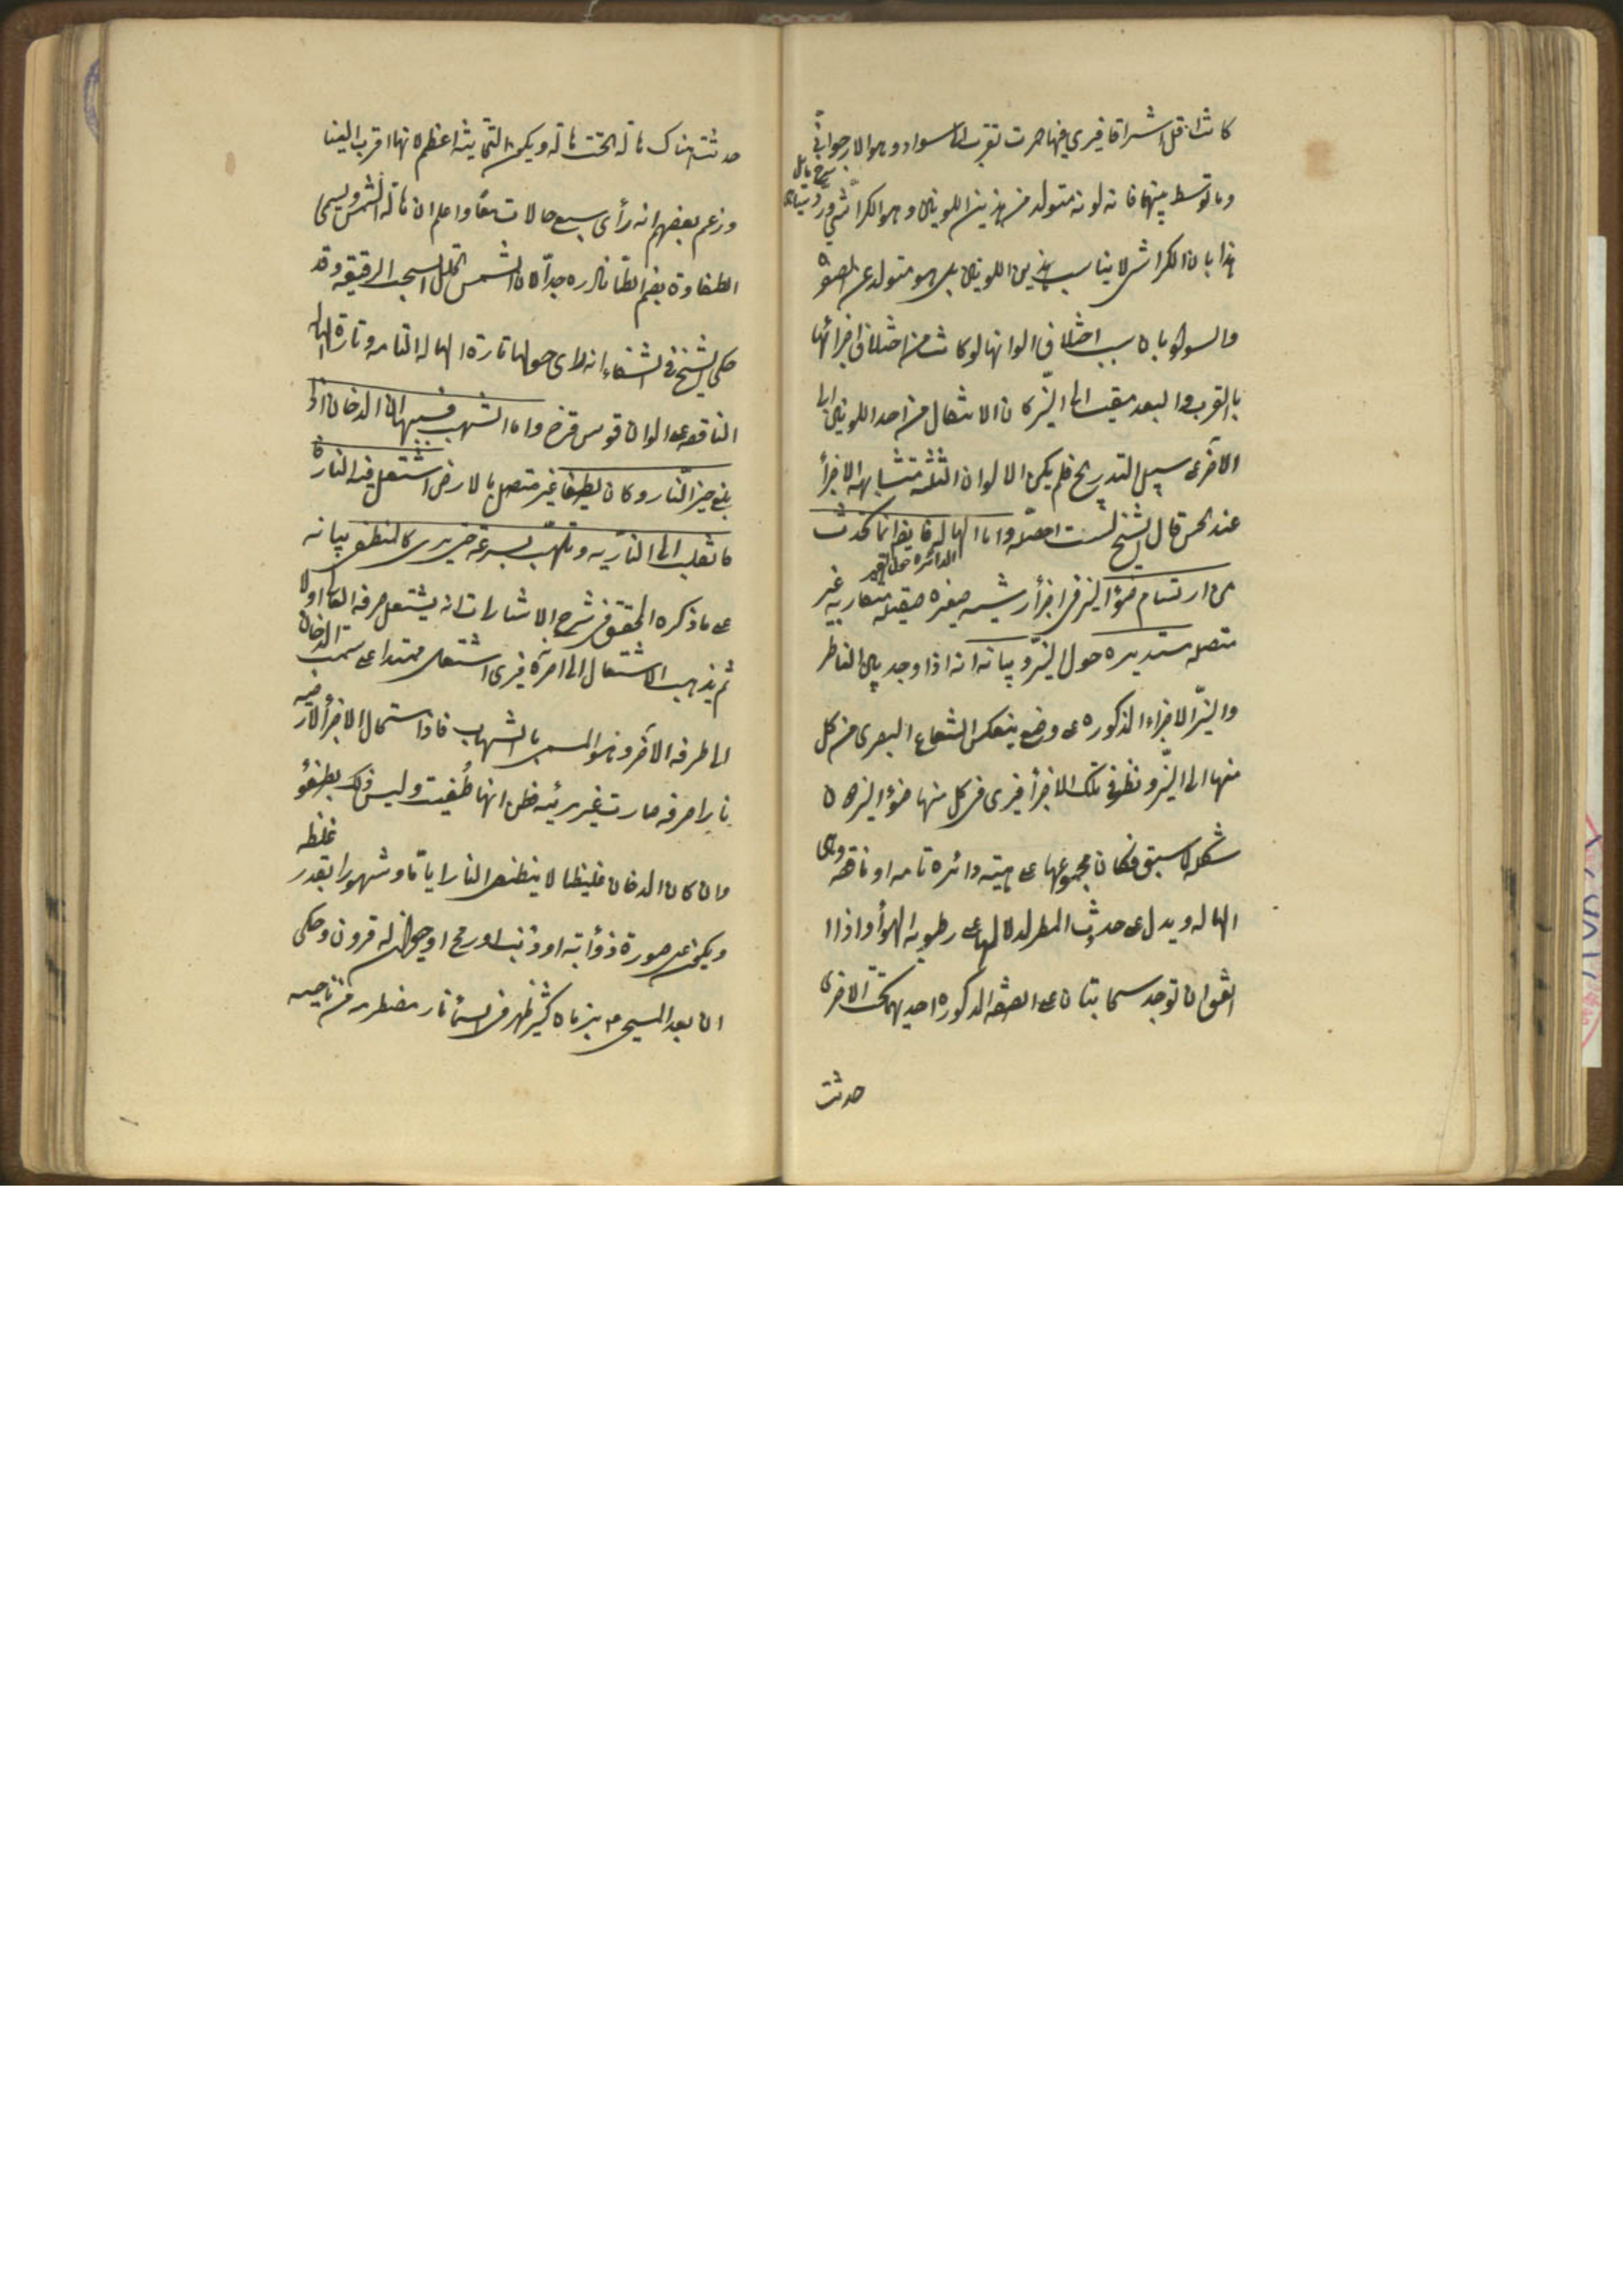 كانت اقل اشراقا فيرى فيها حمرة تقرب الى السواد وهو الارجوانى
وما توسط بينهما فانه لونه متولد من هذين اللونين وهو الكراثى ورد
هذا بان الكراثى لا يناسب هذين اللونين بل هو متولد عن الصفرة
والسواد وبان سبب اختلاف الوانها لو كانت من اختلاف اجزائها
بالقرب والبعد مقيسا الى النير كان الانتقال من احد اللونين الى
الآخر على سبيل التدريج فلم يكن الالوان الثلثة متشابهة الاجزأ
عند الحس قال الشيخ لست احصله واما الهالة فانها تحدث
الدائرة حول القمر
من ارتسام ضوء النير فى اجزأ رشية صغيرة صقيلة متقاربة غير
متصلة مستديرة حول النير وبيانه انه اذا وجد بين الناظر
والنير الاجزاء المذكورة على وضع ينعكس الشعاع البصرى من كل
منها الى النير ونظر فى تلك الاجزأ فيرى فى كل منها ضوء النير دون
شكله لما سبق فكان مجموعها على هيئة دائرة تامة او ناقصة وهى
الهالة ويدل على حدوث المطر لدلالتها على رطوبة الهوأ واذا
اتفق ان توجد سحابتان على الصفة المذكورة احديهما تحت الاخرى
حدثت
حدثت هناك هالة تحت هالة ويكون التحتانية اعظم لانها اقرب الينا
وزعم بعضهم انه رأى سبع هالات معا واعلم ان هالة الشمس ويسمى
الطفاوة بضم الطا نادرة جدا لان الشمس تحلل السحب الرقيقة وقد
حكى الشيخ فى الشفاء انه رأى حولها تارة الهالة التامة وتارة الهالة
الناقصة على الوان قوس قزح واما الشهب فسببها ان الدخان اذا
بلغ حيز النار وكان لطيفا غير متصل بالارض اشتعل فيه النار
فانقلب الى النارية وتلهب بسرعة حتى يرى كالمنطفى بيانه
على ما ذكره المحقق فى شرح الاشارات انه يشتعل طرفه العالى اولا
ثم يذهب الاشتعال الى آخره فيرى اشتعال ممتدا على سمت الدخان
الى طرفه الآخر وهو المسمى بالشهاب فاذا استحال الاجزأ الارضية
نارا صرفة صارت غير مرئية فظن انها طُفيت وليس ذلك بطفو
وان كان الدخان غليظا لا ينطفى النار اياما وشهورا بقدر غلظه
ويكون على صورة ذؤابة او ذنب او رمح او حيوان له قرون وحكى
ان بعد المسيح م بزمان كثير ظهر فى السمأ نار مضطربة من ناحية